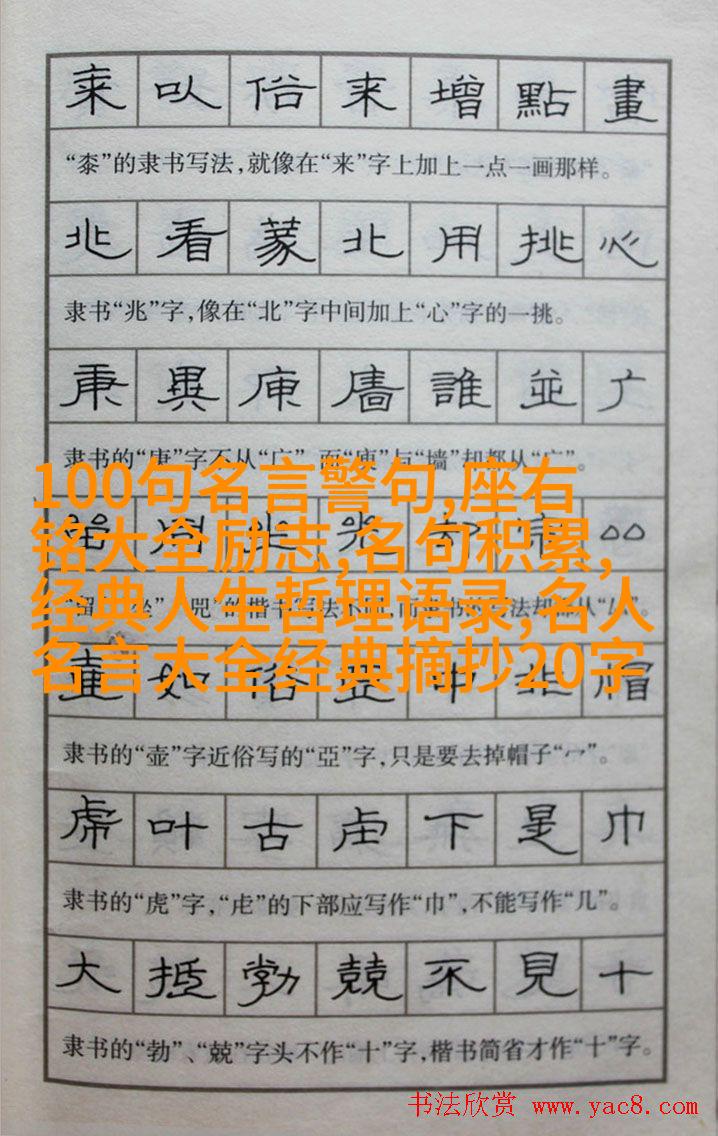 来 以 俗 来 增 點 畫
“桼”的隶书写法,就像在“来”字上加上一点一画那样。
兆 看 篆 北 用 挑 心
隶书“兆”字,像在“北”字中间加上“心”字的一挑。
異 廧 誰 並 广
隶书的“庚”字不从“广”,而“庾”与“墙”却都从“广”。
100句名言警句,座右
铭大全励志,名句积累,
经典人生哲理语录,名人
名言大全经典摘抄20字
如 俗 中 非 帽
隶书的“壶”字近俗写的“亞”字,只是要去掉帽子“冖”。
虎 叶 古 虍 下 是 巾
隶书的“虎”字,“虍”的下部应写作“巾”,不能写作“几”。
大 抵 勃 兢 不 見 十
隶书的“勃”、“兢”字头不作“十”字,楷书简省才作“十”字。
书法欣赏 www.yac8.com